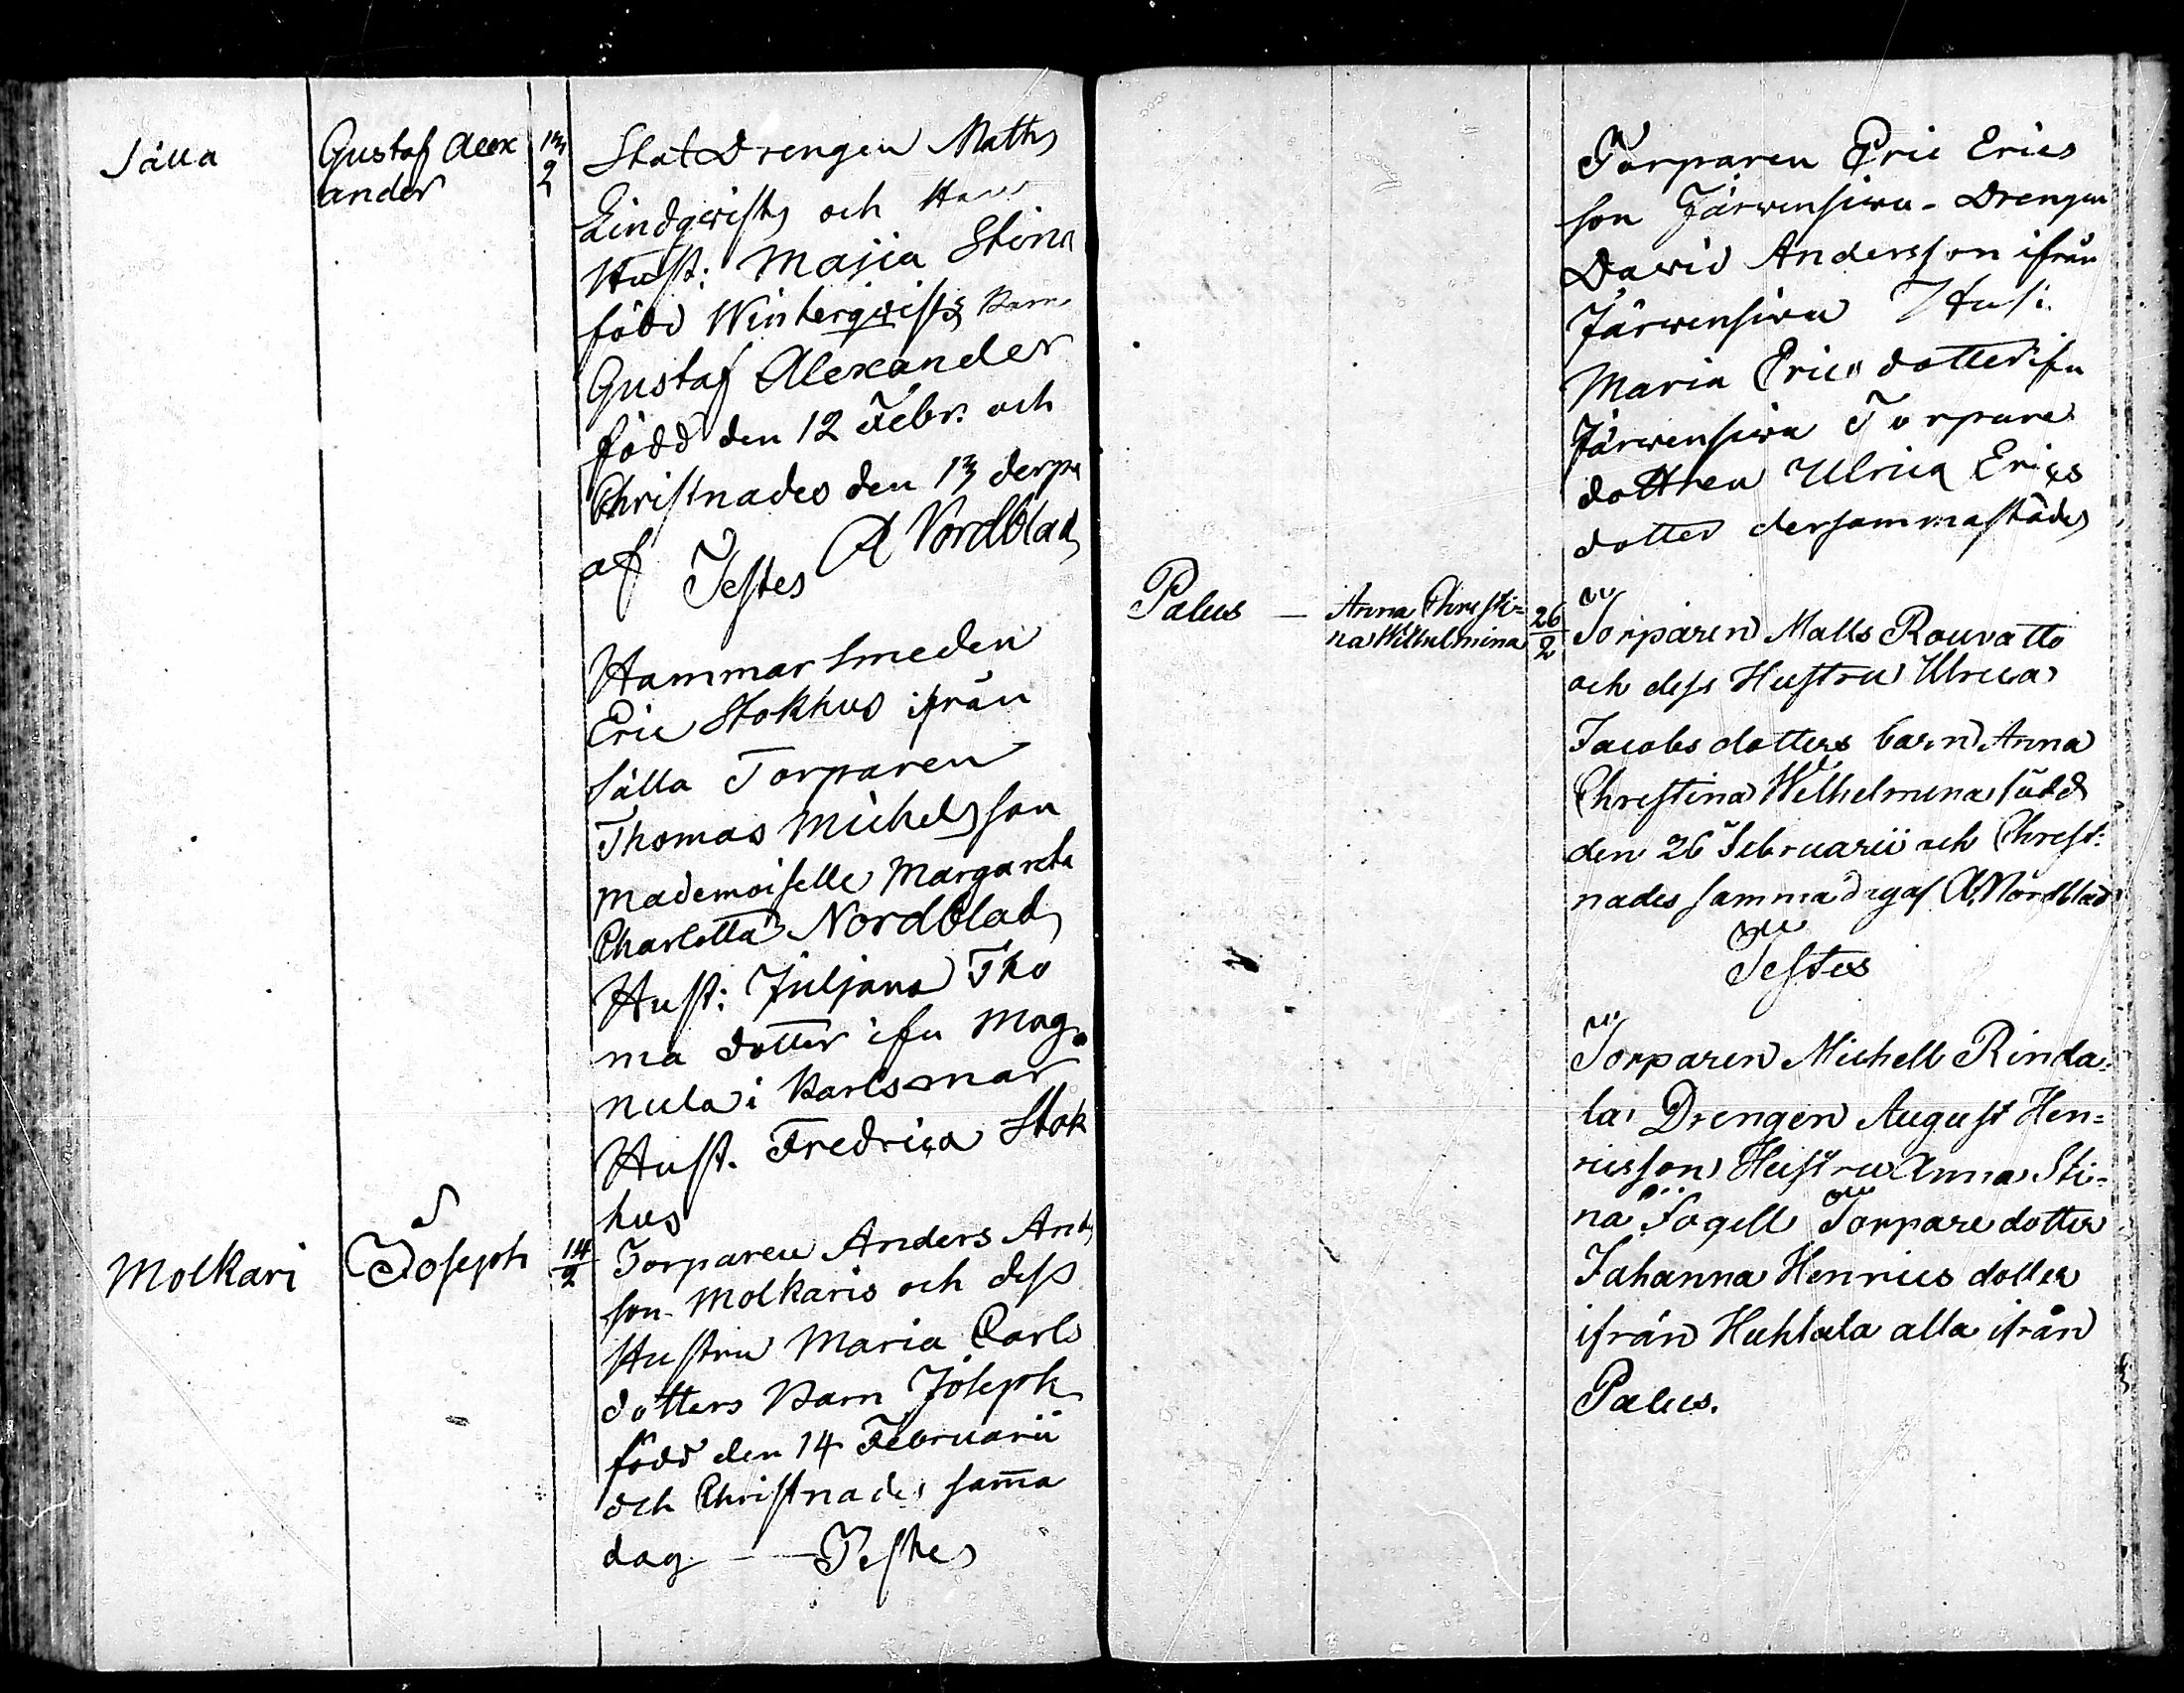 Sälla
Gustaf Alex
ander
13
2
StatDrengen Maths
Lindqvists och Hans
Hust: Majia Stina
född Winterqvists Barn
Gustaf Alexander
född den 12 Febr: och
Christnades den 13 derpå
af A Nordblad
Testes
Hammar Smeden
Eric Stokhus ifrån
Sälla Torparen
Thomas Michelsson
Mademoiselle Margareta
Charlotta Nordblad
Hust: Juljana Tho
ma dotter ifrn Mag
nula i Karlsmar
Hust. Fredrica Stok
hus
Molkari
Joseph
14
2
Torparen Anders Anders
son Molkaris och dess
Hustru Maria Carls
dotters Barn Joseph
född den 14 Februarii
och Christnades sam̄a
dag — Testes
Torparen Eric Erics
son Järwensivu - Drengen
Dawid Andersson ifrån
Järwensivu Hust.
Maria Erics dotter ifrn
Järwensivu Torpare
dottren Ulrica Erics
dotter dersammastädes
Palus — Anna Christi=
na Wilhelmina
26
2
Torparen Matts Rouvatto
och dess Hustru Ulrica
Jacobs dotters barn Anna
Christina Wilhelmina född
den 26 Februarii och Christ:
nades samma dag af A. Nordblad
Testes
Torparen Michell Rinda=
la, Drengen August Hen=
ricsson Hustru Anna Sti=
na Fogell Torpare dotter
Johanna Henrics dotter
ifrån Huhtala alla ifrån
Palus.